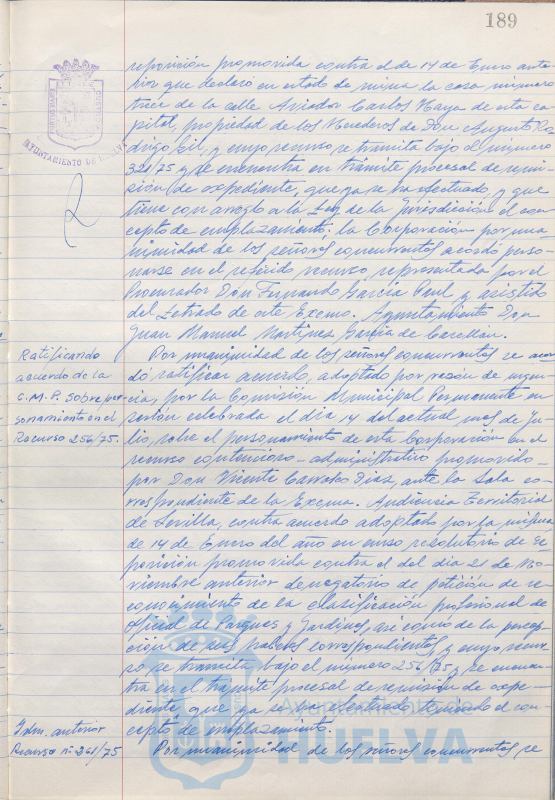 189
reposición promovida contra el de 14 de Enero ante-
rior que declaró en estado de ruina la casa número
trece de la calle Aviador Carlos Haya de esta ca-
pital, propiedad de los Herederos de Don Augusto Ro-
drigo Gil, y cuyo recurso se tramita bajo el número
321/75 y se encuentra en trámite procesal de remi-
sión de expediente, que ya se ha efectuado, y que
tiene con arreglo a la Ley de la Jurisdicción el con-
cepto de emplazamiento; la Corporación por una-
nimidad de los señores concurrentes acordó perso-
narse en el referido recurso, representada por el
Procurador Don Fernando García Paul y asistido
del Letrado de este Excmo. Ayuntamiento Don
Juan Manuel Martínez García de
AYUNTAMIENTO DE HUELVA
Ratificando
acuerdo de la
C.M.P. sobre per-
sonamiento en el
Recurso 256/75.
Por unanimidad de los señores concurrentes se acor-
dó ratificar acuerdo, adoptado por razón de urgen-
cia, por la Comisión Municipal Permanente en
sesión celebrada el día 4 del actual mes de Ju-
lio, sobre el personamiento de esta Corporación en el
recurso contencioso-administrativo promovido
por Don Vicente Díaz, ante la Sala co-
rrespondiente de la Excma. Audiencia Territorial
de Sevilla, contra acuerdo adoptado por la misma
de 14 de Enero del año en curso resolutorio de re-
posición promovida contra el del día 21 de No-
viembre anterior denegatorio de petición de re-
conocimiento de la clasificación profesional de
Oficial de Parques y Jardines, así como de la percep-
ción de sus haberes correspondientes, y cuyo recur-
so se tramita bajo el número 256/75 y se encuen-
tra en el trámite procesal de remisión de expe-
diente que ya se ha efectuado teniendo el con-
cepto de emplazamiento.
Idm. anterior
Recurso nº 361/75
Por unanimidad de los señores concurrentes se
Ayuntamiento de
HUELVA